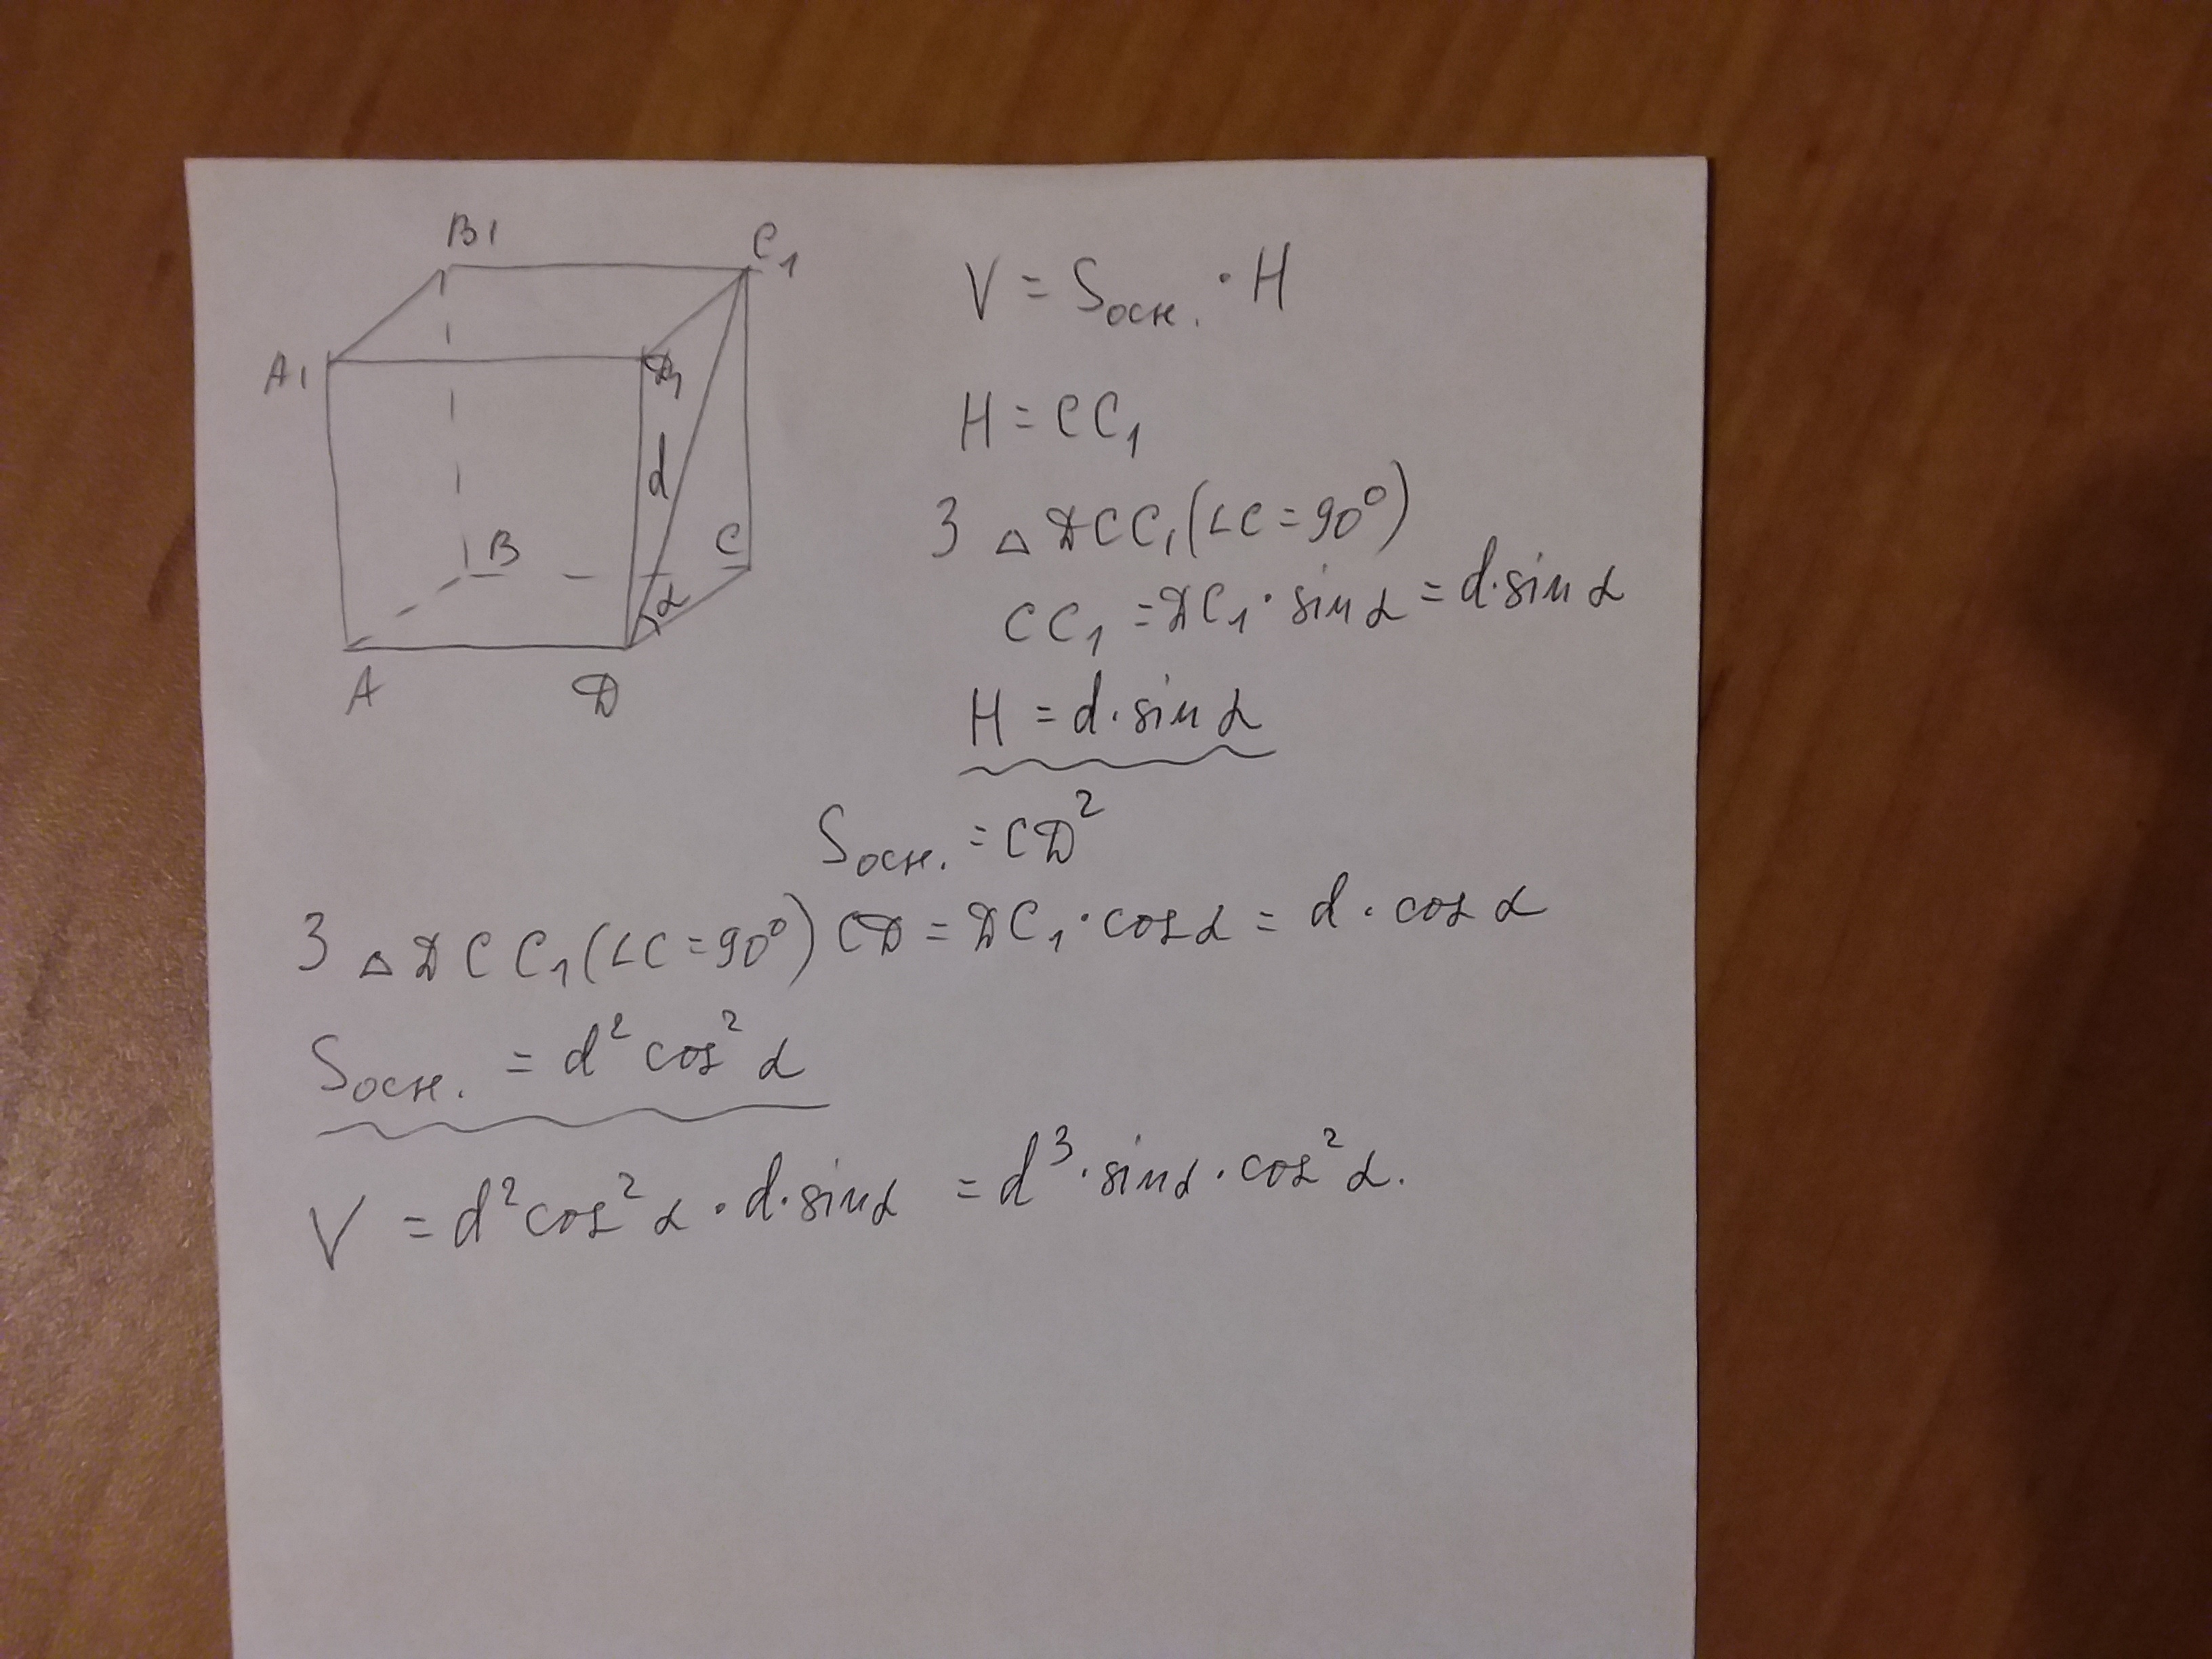 B1
C1
A1
D1
d
B
C
α
A
D
V = Sосн. · H
H = CC1
З △ DCC1 (∠C = 90°)
CC1 = DC1 · sin α = d · sin α
H = d · sin α
Sосн. = CD²
З △ DCC1 (∠C = 90°) CD = DC1 · cos α = d · cos α
Sосн. = d² cos² α
V = d² cos² α · d · sin α = d³ · sin α · cos² α.